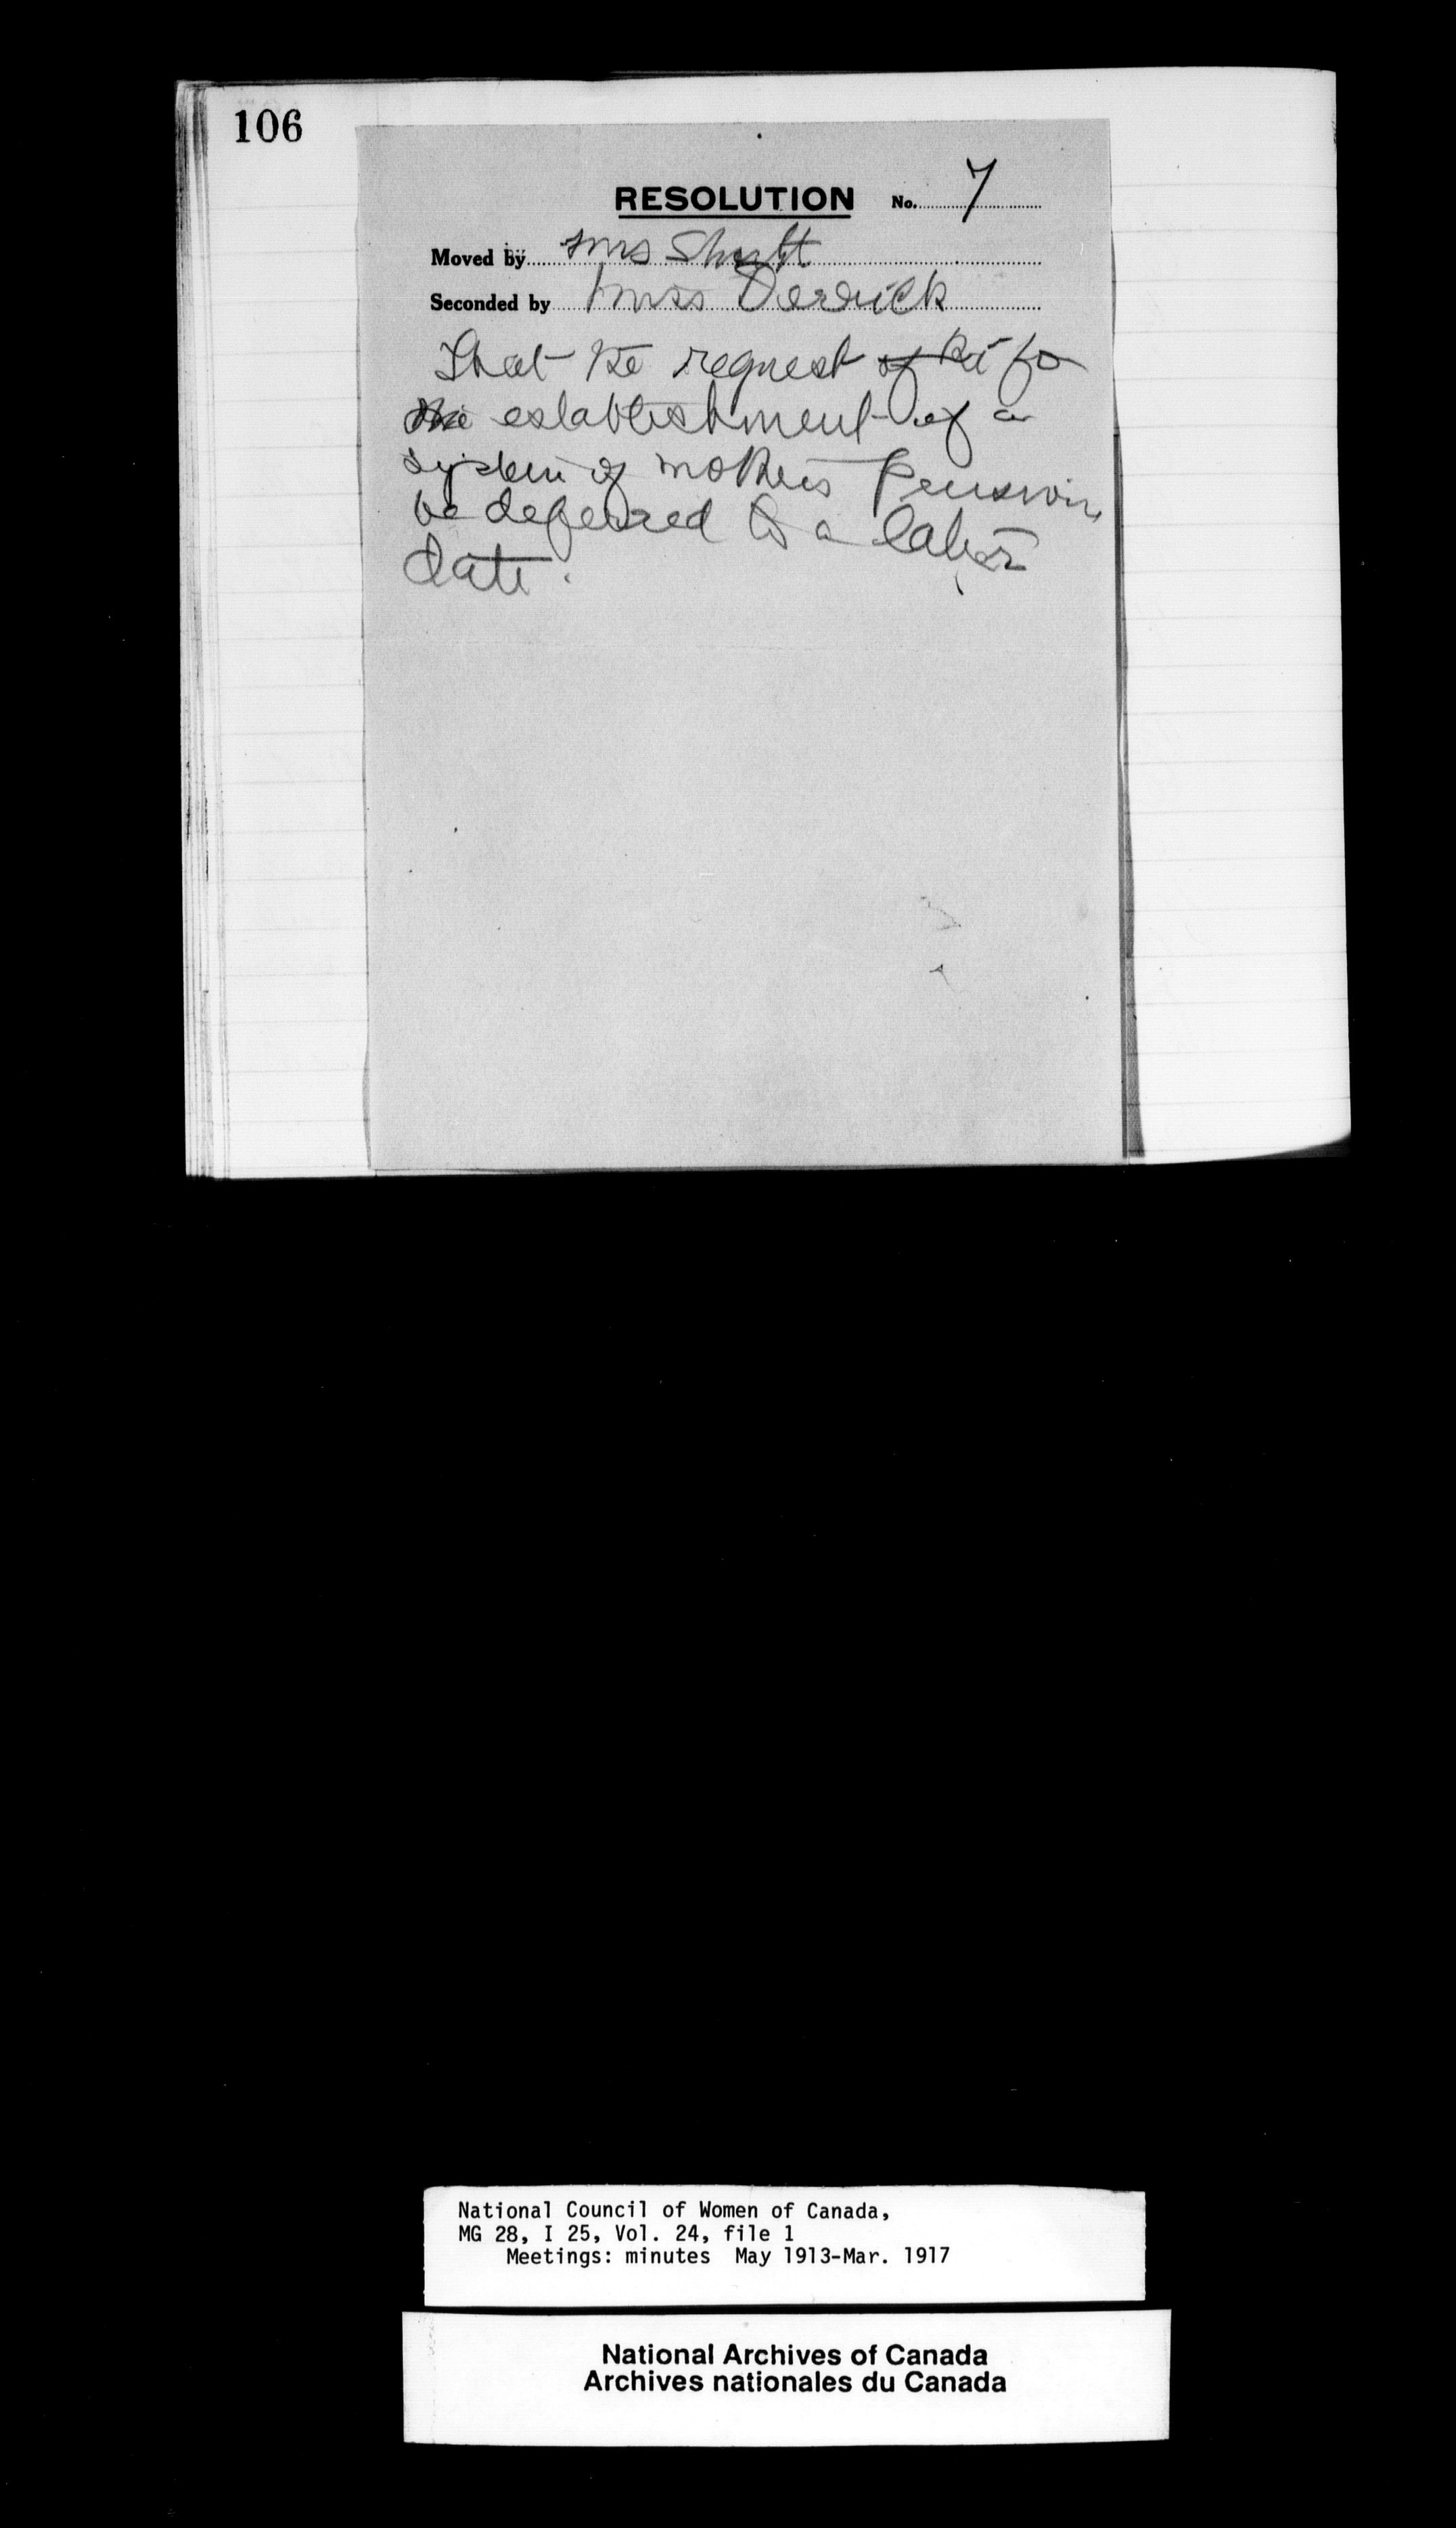 106
RESOLUTION No. 7
Moved by Mrs Shutt
Seconded by Miss Derrick
That the request of the for
the establishment of a
system of mothers Pensions
be deferred to a later
date.
National Council of Women of Canada,
MG 28, I 25, Vol. 24, file 1
Meetings: minutes May 1913-Mar. 1917
National Archives of Canada
Archives nationales du Canada